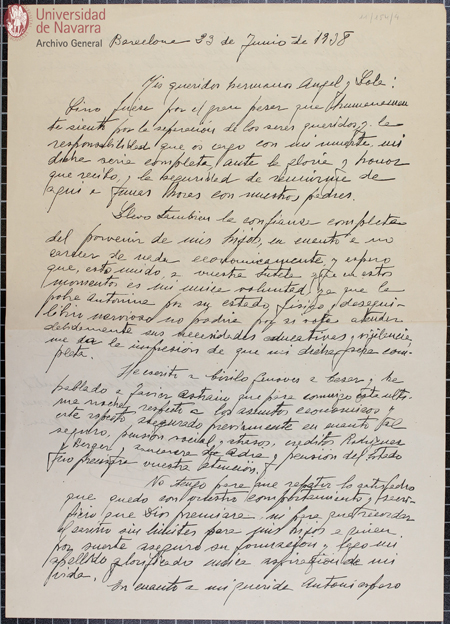 Universidad
de Navarra
Archivo General
Barcelona 23 de Junio de 1938
Mis queridos hermanos Angel y Lola:
Sino fuese por el gran pesar que humanamen
te siento por la separación de los seres queridos, y la
responsabilidad que os cargo con mi muerte, mi
dicha seria completa ante la gloria y honor
que recibo, y la seguridad de reunirme de
aqui a unas horas con nuestros padres.
Llevo tambien la confianza completa
del porvenir de mis hijos, en cuanto a no
carecer de nada economicamente, y espero
que, esto unido, a vuestra tutela que en estos
momentos es mi unica voluntad, ya que la
pobre Antonina por su estado fisico y desequi-
librio nervioso no podria por si sola atender
debidamente sus necesidades educativas, y vigilancia
me da la impresión de que mi dicha sea com-
pleta.
He escrito a Cirilo Genoves a Cesar, y he
hablado a Javier que pasa conmigo esta ulti-
ma noche, respecto a los asuntos economicos y
este aspecto asegurado previamente en cuanto tal
seguro, pensión social, atrasos, credito Rodriguez
y Berger, y pensión del Estado
vuestra atención.
No tengo para que repetir lo agradecido
que quedo con vuestro comportamiento, y sacri-
ficio que Dios premiara, ni para que recordar
el cariño sin limites para mis hijos a quien
por suerte aseguro su formación, y lego mi
apellido glorificado unica aspiración de mi
vida.
En cuanto a mi querida Antonina